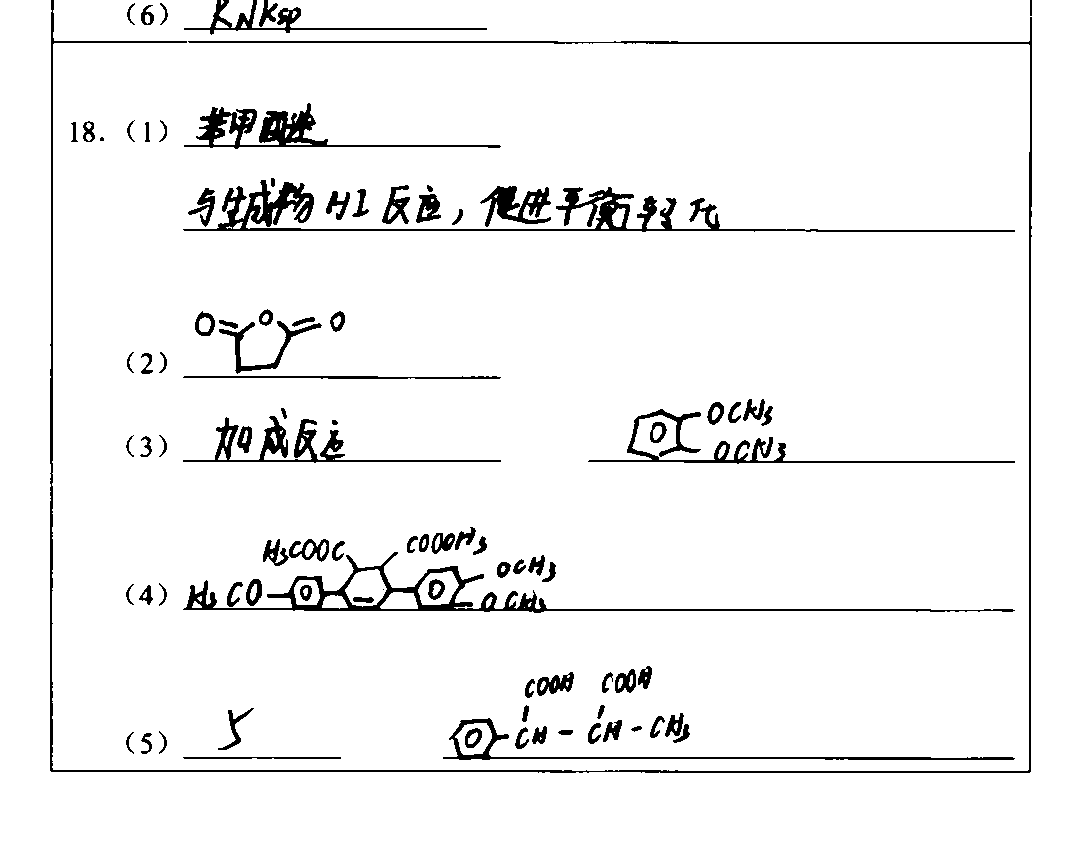 (6) KNKsp
18. (1) 苯甲醛
与生成物HI反应，促进平衡转化
(2) O O O
(3) 加成反应 OCH3 OCH3
H3COOC COOCH3
(4) H3CO OCH3 OCH3
COOH COOH
(5) 5 CH - CH - CH3